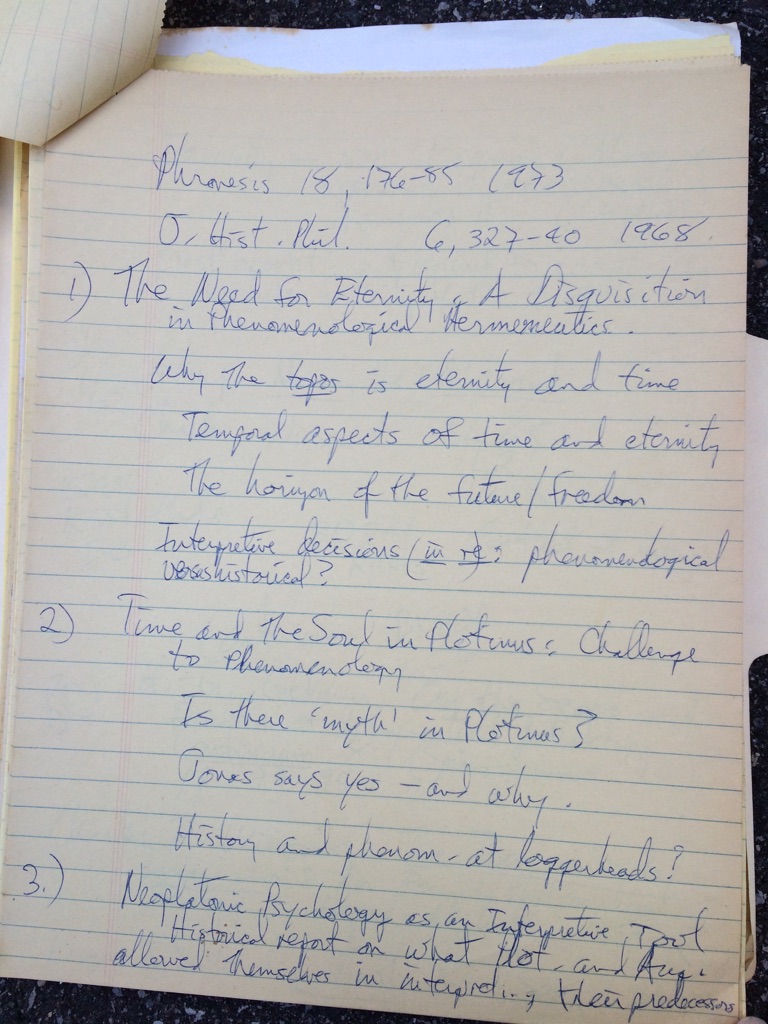 Phronesis 18, 176-85 1973
J. Hist. Phil. 6, 327-40 1968.
1) The Need for Eternity: A Disquisition
in Phenomenological Hermeneutics.
Why the topos is eternity and time
Temporal aspects of time and eternity
The horizon of the future/freedom
Interpretive decisions (in re): phenomenological
versus historical?
2) Time and the Soul in Plotinus: Challenge
to Phenomenology
Is there 'myth' in Plotinus?
Jonas says yes - and why.
History and phenom. at loggerheads?
3.) Neoplatonic Psychology as an Interpretive Tool
Historical report on what Plot. and Aug.
allowed themselves in interpreting their predecessors